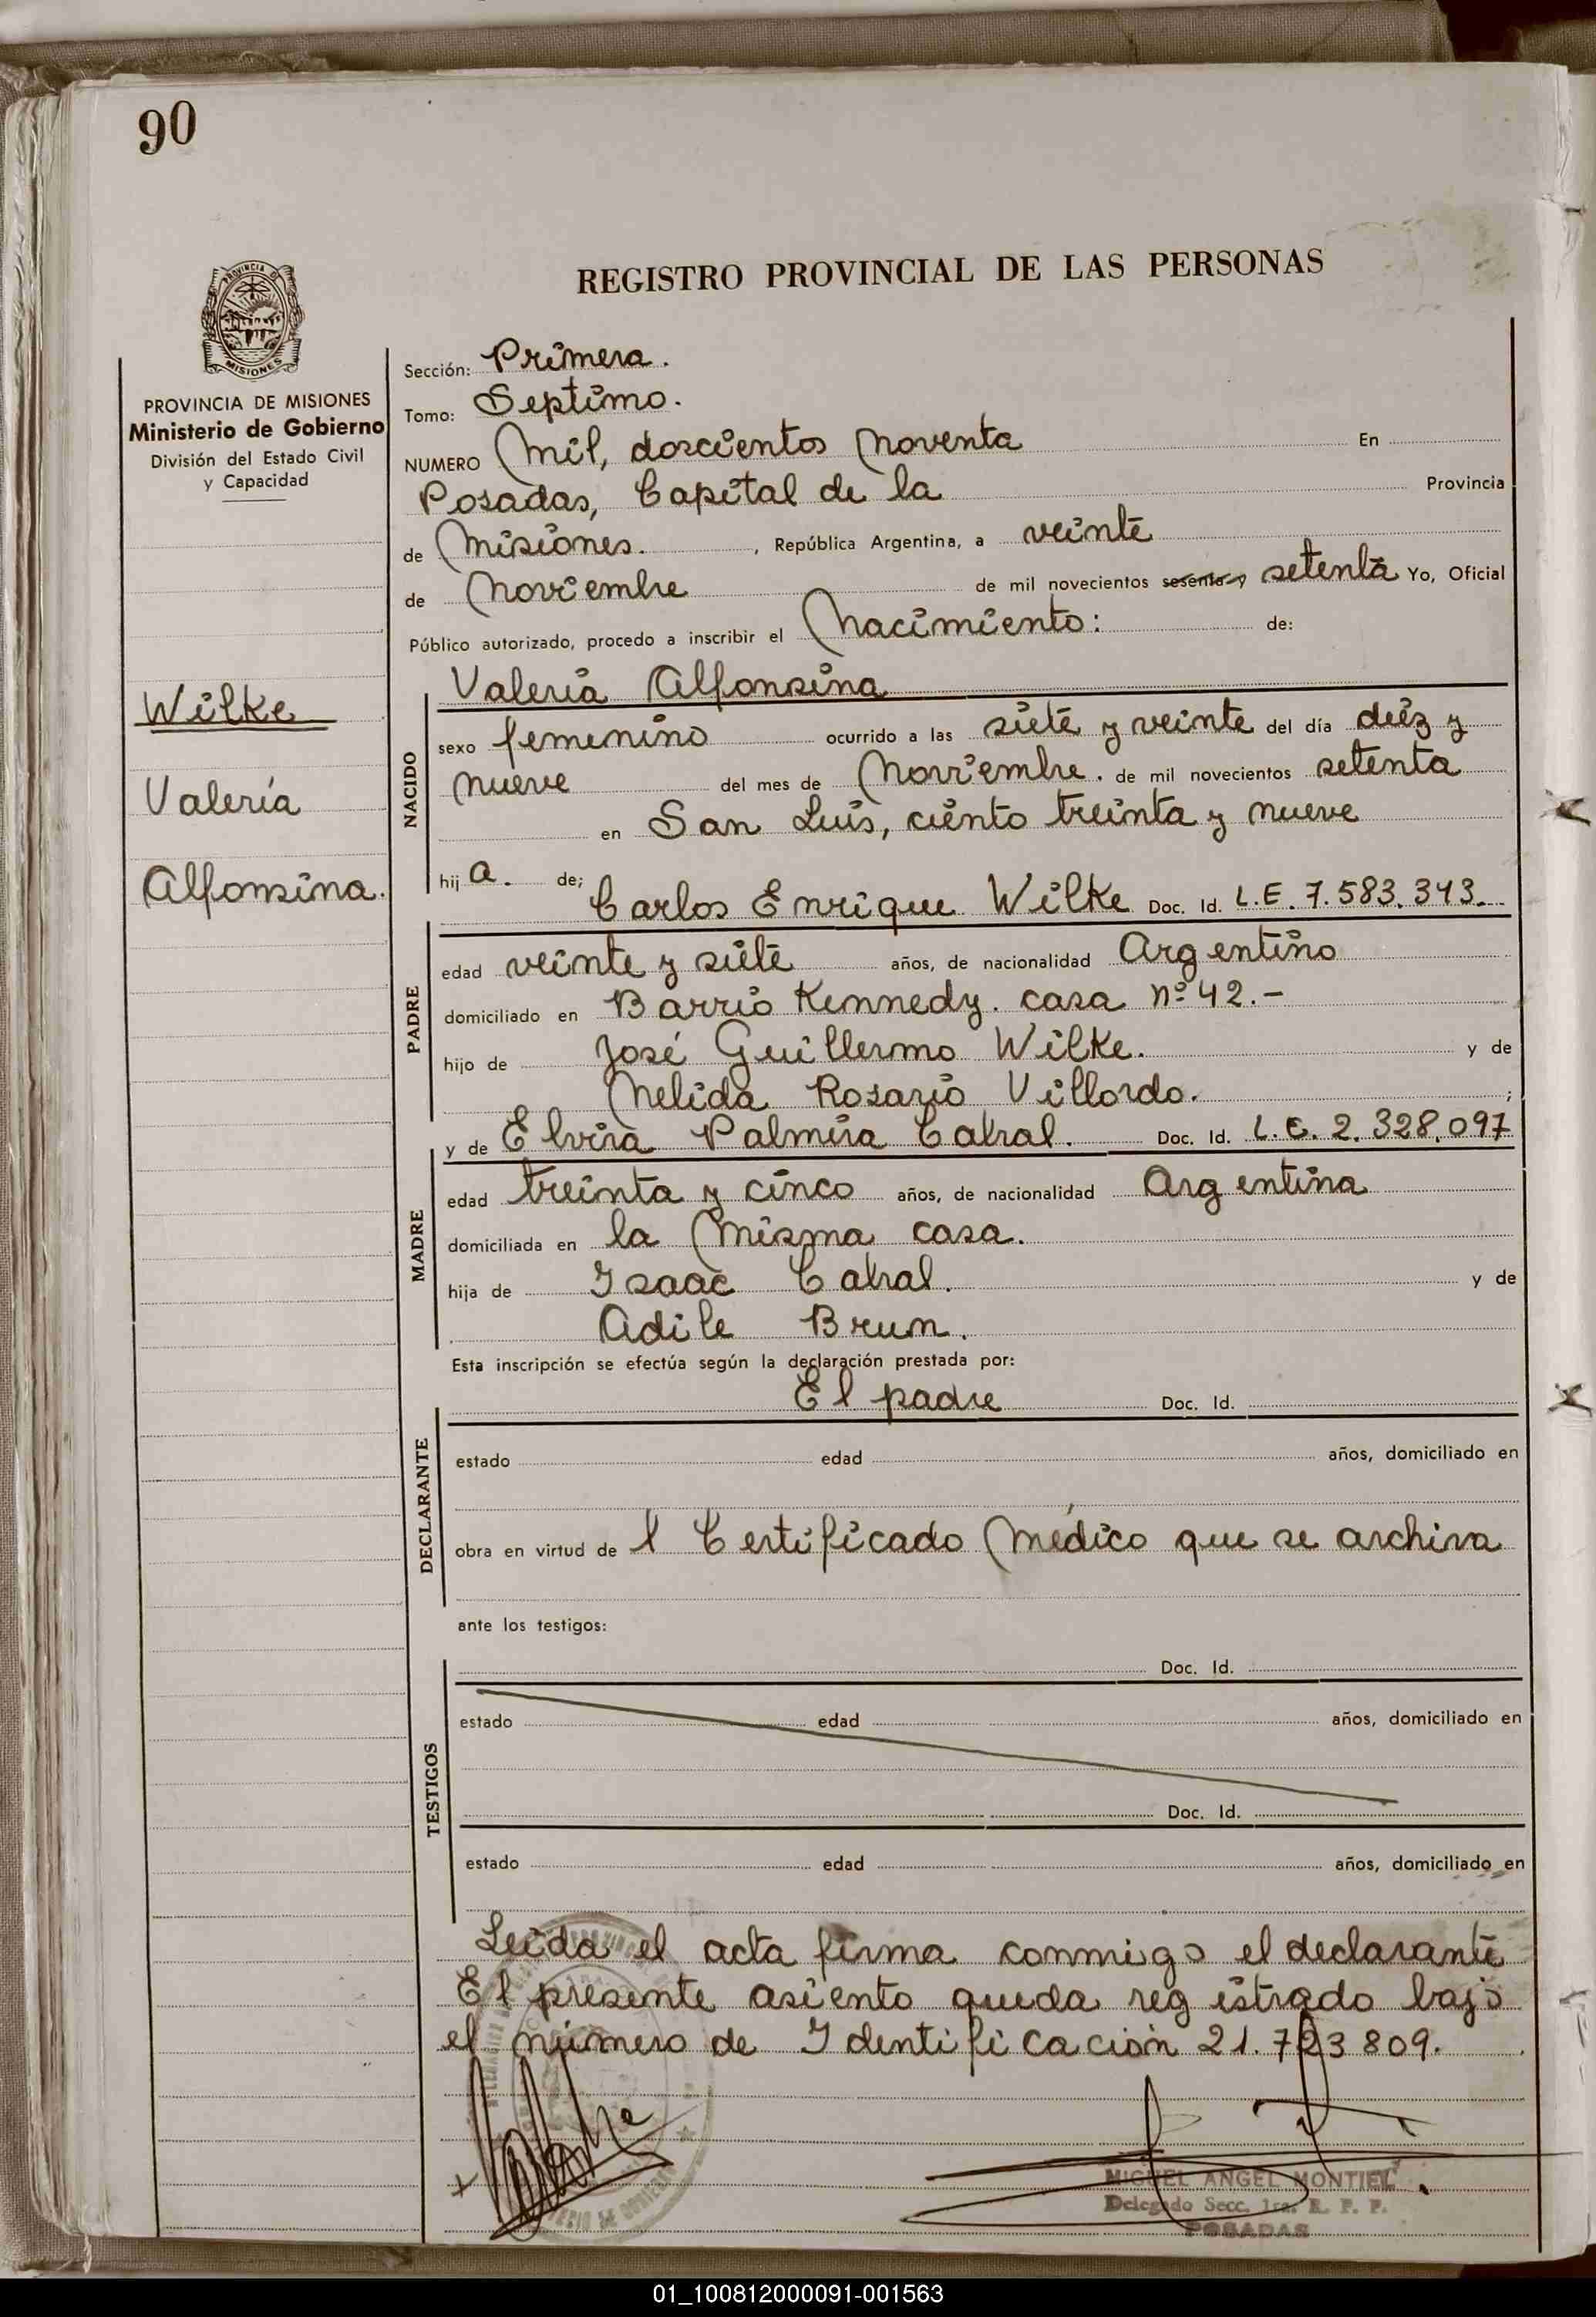 90
REGISTRO PROVINCIAL DE LAS PERSONAS
PROVINCIA DE
MISIONES
PROVINCIA DE MISIONES
Ministerio de Gobierno
División del Estado Civil
y Capacidad
Wilke
Valeria
Alfonsina.
Sección: Primera.
Tomo: Septimo.
NUMERO Mil, doscientos Noventa En
Posadas, Capital de la Provincia
de Misiones. , República Argentina, a veinte
de Noviembre de mil novecientos sesenta y setenta Yo, Oficial
Público autorizado, procedo a inscribir el Nacimiento: de:
Valeria Alfonsina
NACIDO
sexo femenino ocurrido a las siete y veinte del día diez y
nueve del mes de Noviembre. de mil novecientos setenta
en San Luis, ciento treinta y nueve
hij a. de;
Carlos Enrique Wilke Doc. Id. L.E. 7.583.343.
PADRE
edad veinte y siete años, de nacionalidad Argentino
domiciliado en Barrio Kennedy. casa nº 42.-
hijo de José Guillermo Wilke. y de
Nelida Rosario Villordo. ;
y de Elvira Palmira Cabral. Doc. Id. L.C. 2.328.097
MADRE
edad treinta y cinco años, de nacionalidad Argentina
domiciliada en la Misma casa.
hija de Isaac Cabral. y de
Adile Brun.
Esta inscripción se efectúa según la declaración prestada por:
El padre Doc. Id.
DECLARANTE
estado edad años, domiciliado en
obra en virtud de l Certificado Médico que se archiva
ante los testigos:
Doc. Id.
TESTIGOS
estado edad años, domiciliado en
Doc. Id.
estado edad años, domiciliado en
Leida el acta firma conmigo el declarante
El presente asiento queda registrado bajo
el número de Identificación 21.723809.
MIGUEL ANGEL MONTIEL
Delegado Secc. 1ra. R. P. P.
POSADAS
01_100812000091-001563